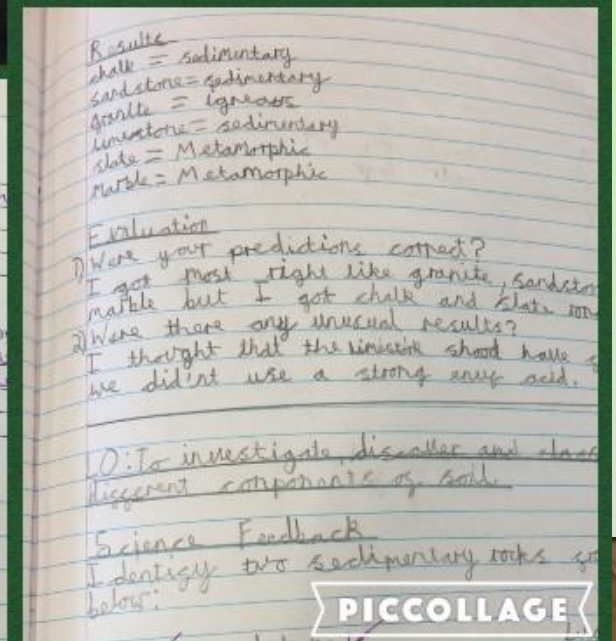 Results
chalk = sedimentary
sandstone = sedimentary
granite = igneous
limestone = sedimentary
slate = Metamorphic
marble = Metamorphic
Evaluation
1) Were your predictions correct?
I got most right like granite, sandston
marble but I got chalk and slate
2) Were there any unusual results?
I thought that the limestone shood have
we did'nt use a strong enuf acid.
LO: To investigate, discover and
different components of soil
Science Feedback
Identify two sedimentary rocks
below:
PICCOLLAGE